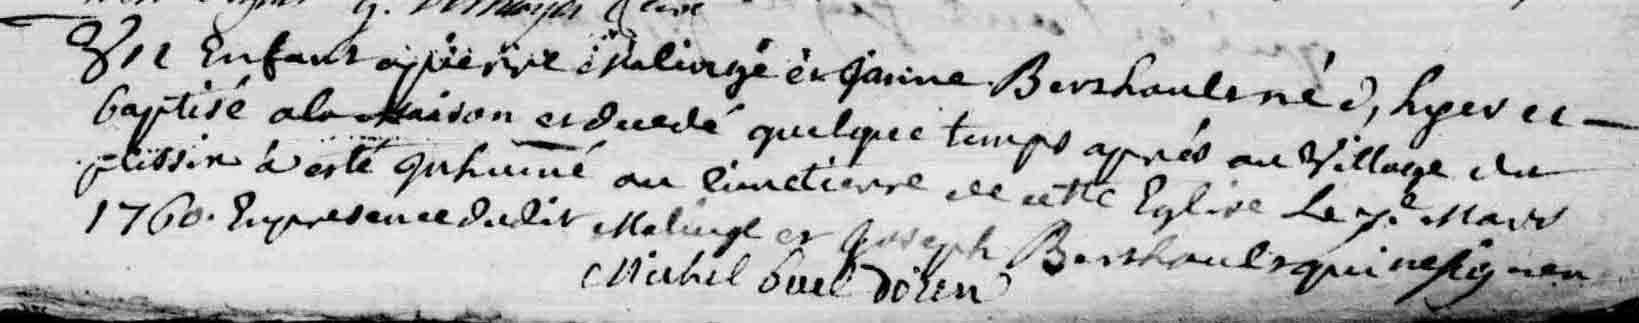 Un Enfant a pierre Malingé et Janne Bershoult né d'hyer et
baptisé a la Maison et decedé quelque temps aprés au Village du
plissix à esté Inhumé au Cimetierre de cette Eglise Le 7e Mars
1760. En presence dudit Malinge et Joseph Bershoult qui ne signen
Michel buel doïen